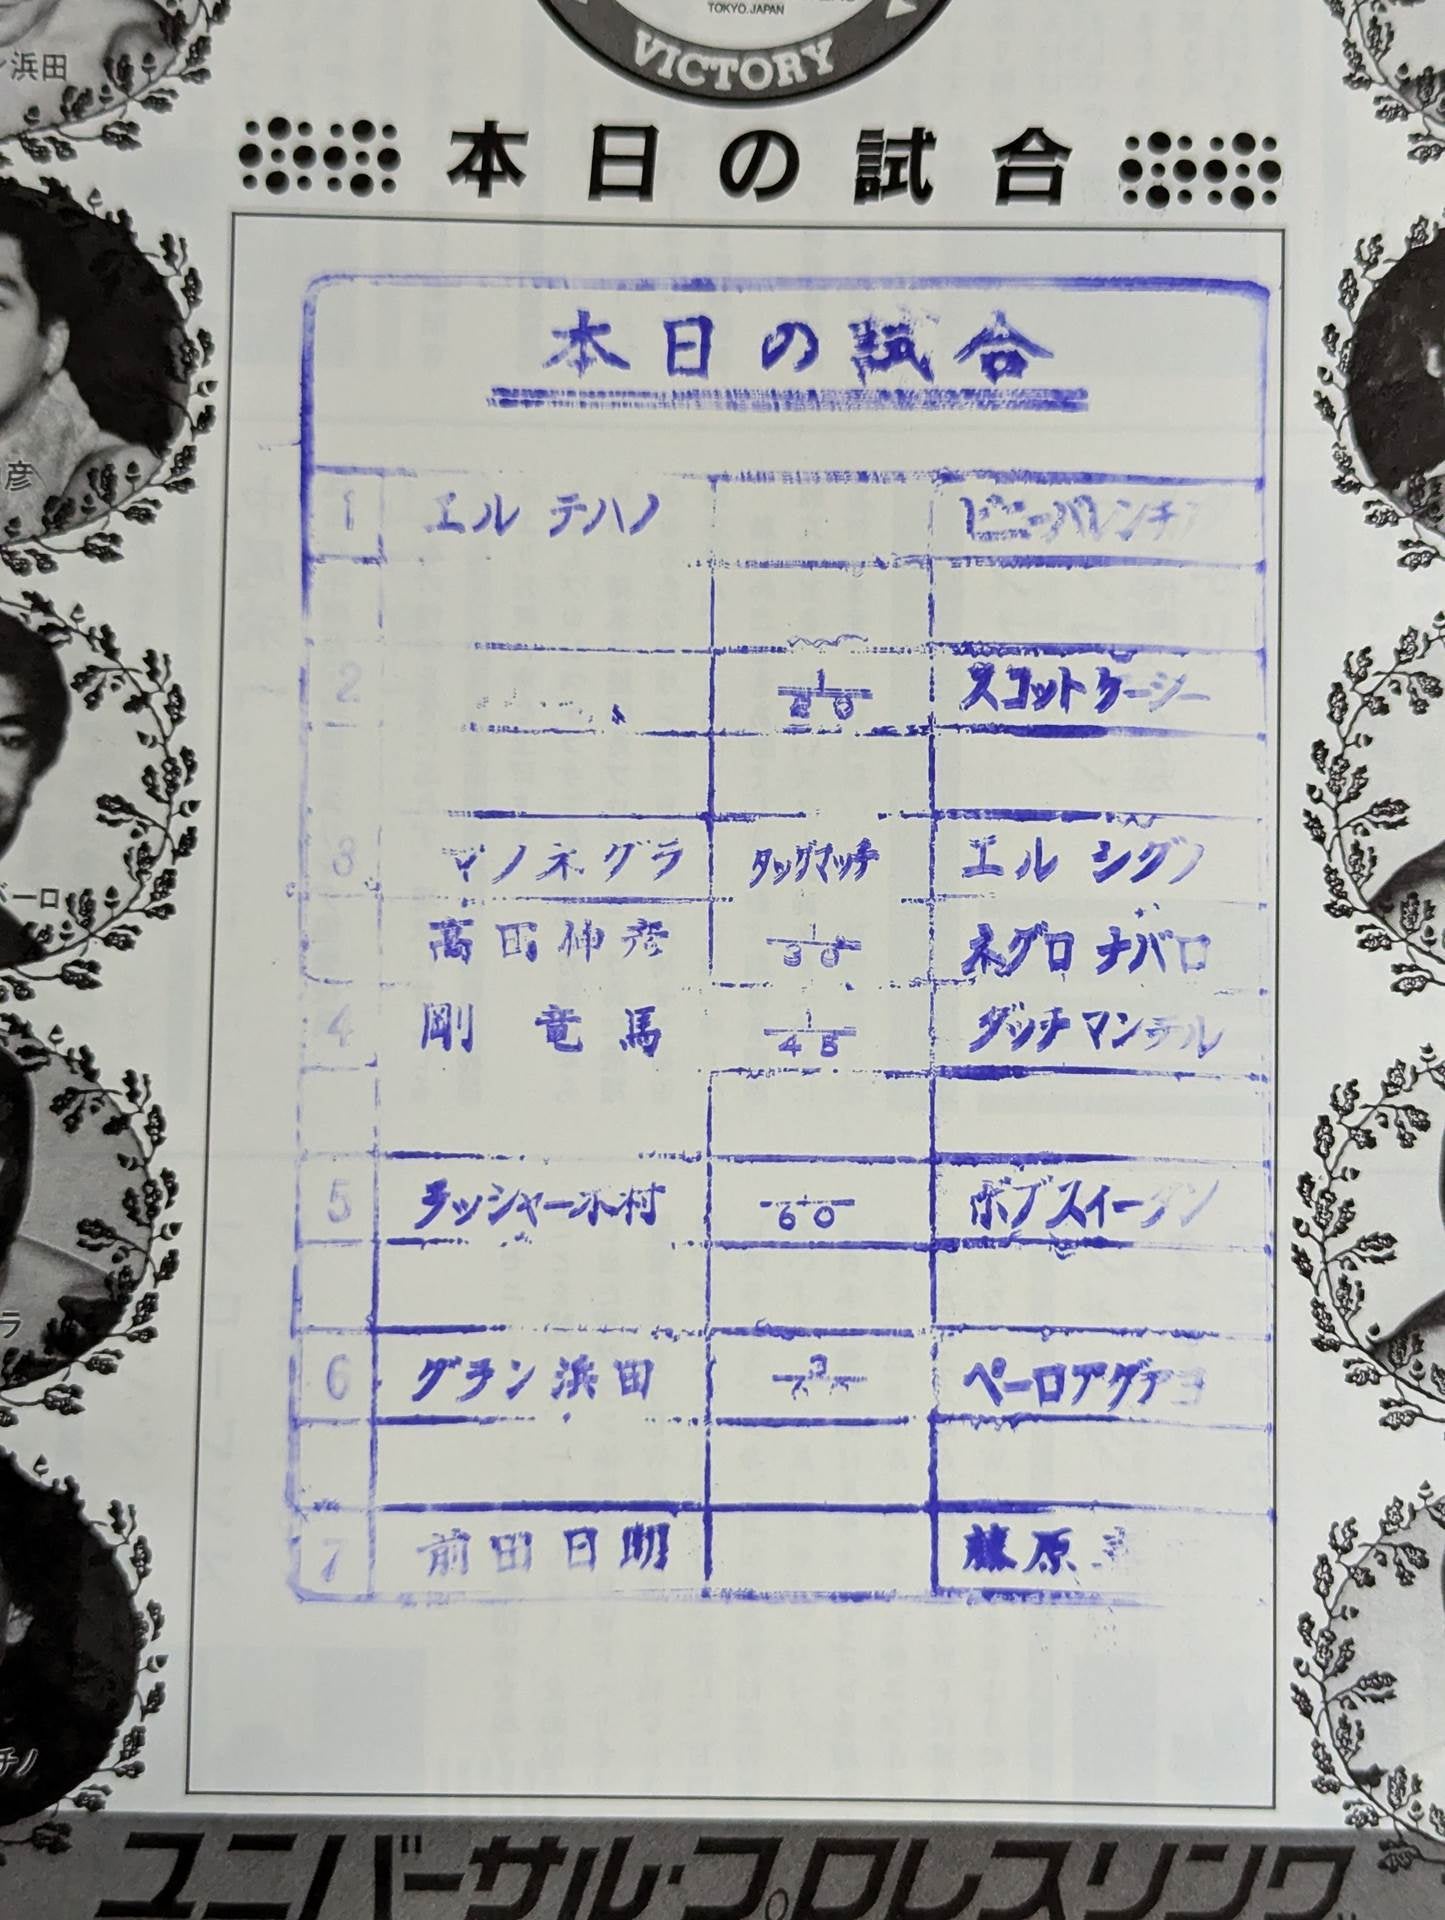 TOKYO.JAPAN
VICTORY
浜田
本日の試合
彦
バーロ
ラ
チノ
本日の試合
1 エル テハノ ビニーバレンチ
2 1 20 スコットケーシー
3 マノネグラ タッグマッチ エル シグノ
高田伸彦 1 30 ネグロ ナバロ
4 剛 竜馬 1 45 ダッチマンテル
5 ラッシャー木村 1 60 ボブスイータン
6 グラン浜田 3 ペーロアグアヨ
7 前田日明 藤原
ユニバーサル・プロレスリング